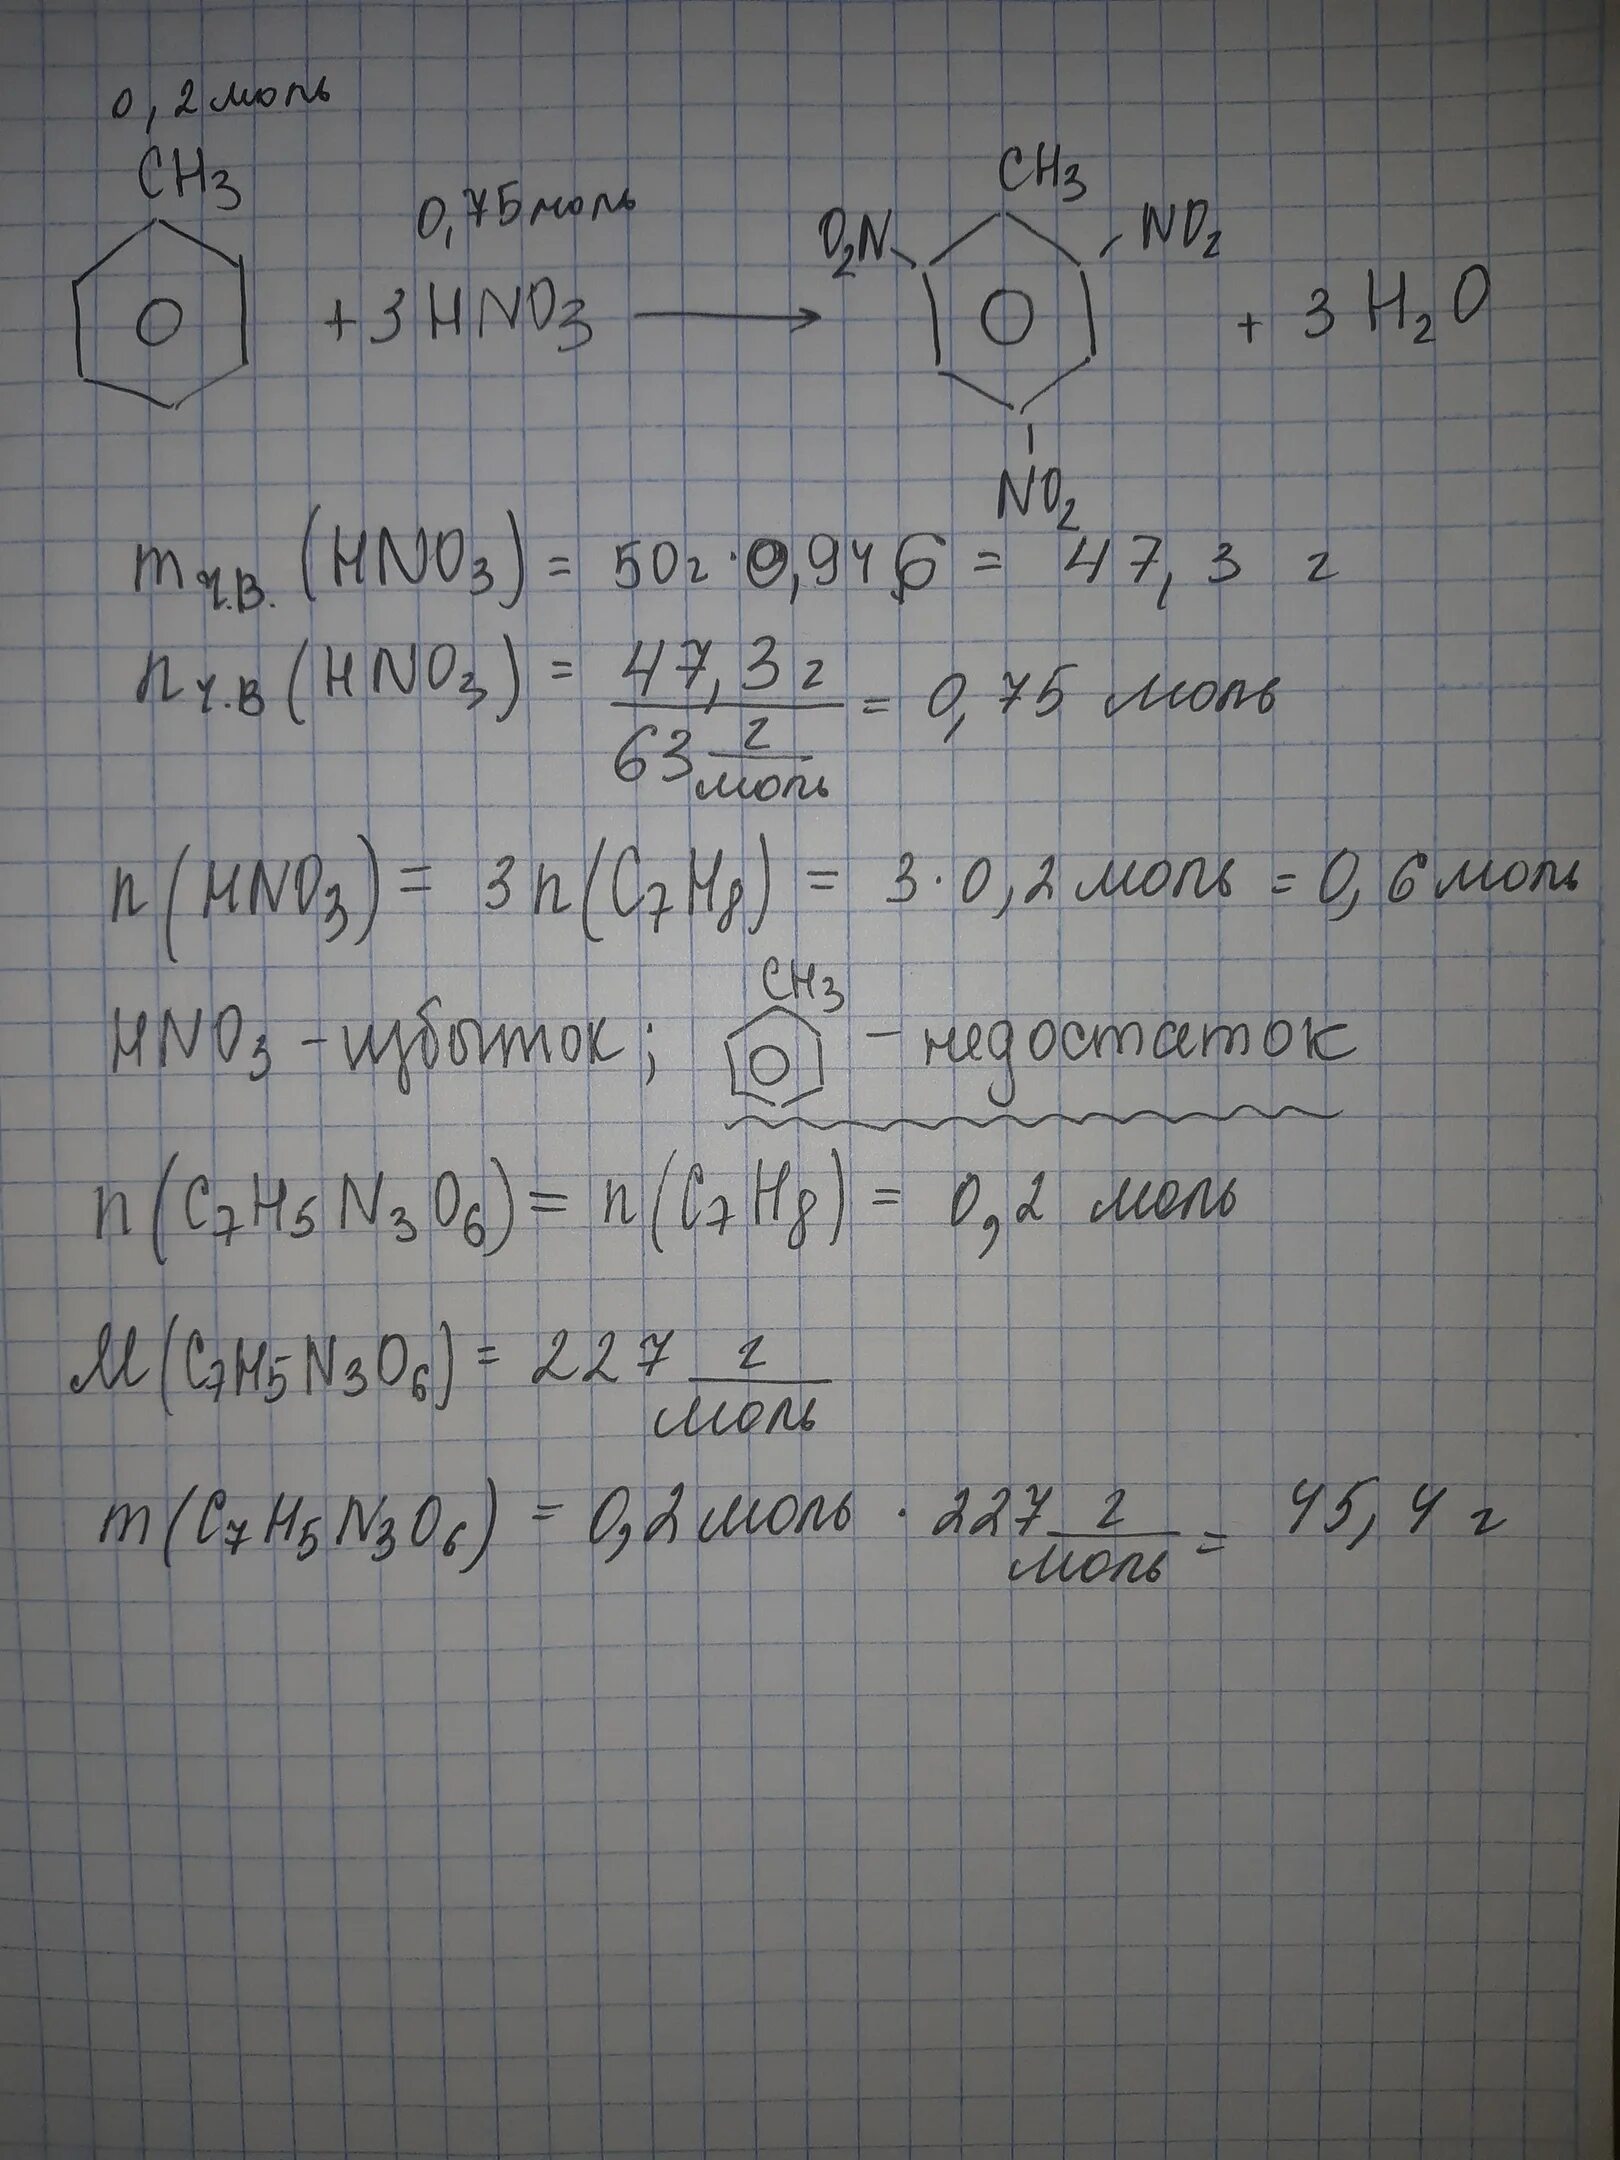 0,2 моль
CH3 CH3
0,75 моль O2N NO2
+ 3HNO3 → + 3H2O
NO2
mч.в. (HNO3) = 50г · 0,946 = 47,3 г
nч.в (HNO3) = 47,3 г / 63 г/моль = 0,75 моль
n(HNO3) = 3n(C7H8) = 3 · 0,2 моль = 0,6 моль
CH3
HNO3 - избыток; - недостаток
n(C7H5N3O6) = n(C7H8) = 0,2 моль
M(C7H5N3O6) = 227 г/моль
m(C7H5N3O6) = 0,2 моль · 227 г/моль = 45,4 г